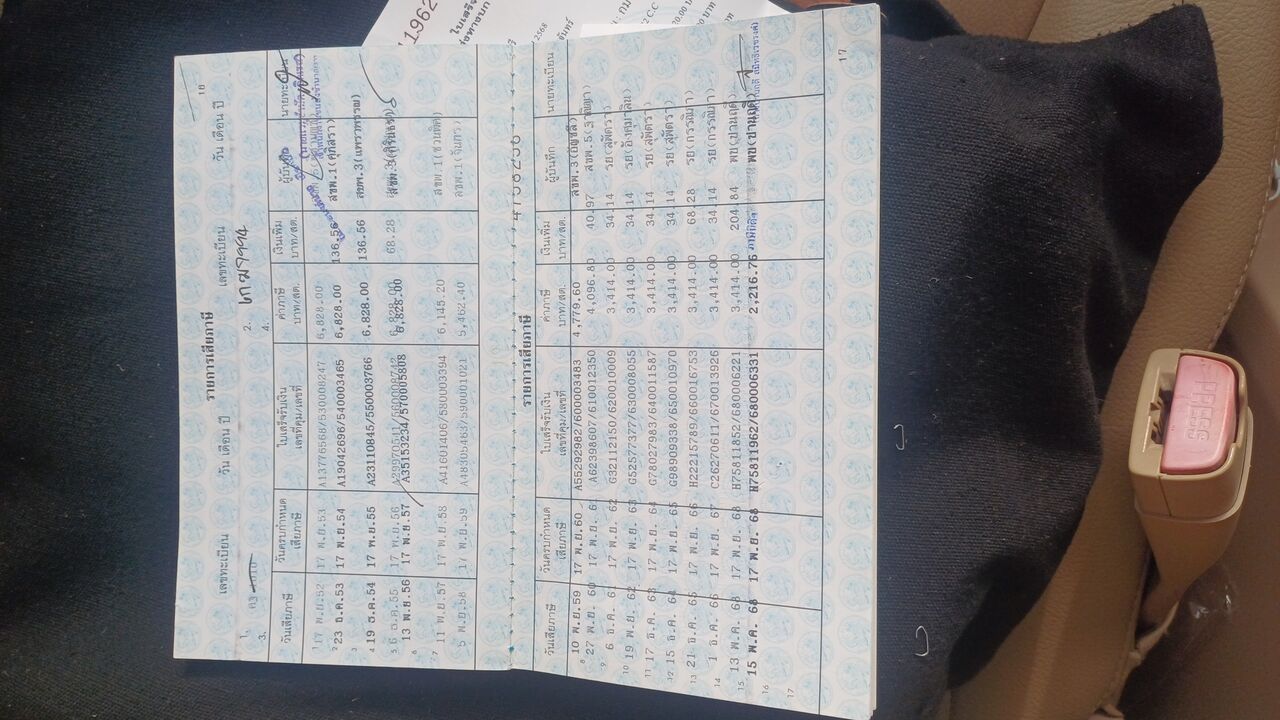 11962
ใบเสร็จ
2568
จันทร์
2 C.C
18
รายการเสียภาษี
เลขทะเบียน วัน เดือน ปี เลขทะเบียน วัน เดือน ปี
1. 2.
3. 4.
วันเสียภาษี วันครบกำหนดเสียภาษี ใบเสร็จรับเงินเล่มที่คุม/เลขที่ ค่าภาษีบาท/สต. เงินเพิ่มบาท/สต. ผู้บันทึก นายทะเบียน
17 พ.ย.52 17 พ.ย.53 A13776568/530008247 6,828.00
2 23 ธ.ค.53 17 พ.ย.54 A19042696/540003465 6,828.00 136.56 สขพ.1(ศุภสรา)
3
4 19 ธ.ค.54 17 พ.ย.55 A23110845/550003766 6,828.00 136.56 สขพ.3(แพรวพรรณ)
5 6 ธ.ค.55 17 พ.ย.56 6,828.00 68.28
13 พ.ย.56 17 พ.ย.57 A35153234/570005808 6,828.00
6
7 11 พ.ย.57 17 พ.ย.58 A41601406/580003394 6,145.20 สขพ.1
5 พ.ย.58 17 พ.ย.59 A48305463/590001021 5,462.40 สขพ.1
4158256
รายการเสียภาษี
วันเสียภาษี วันครบกำหนดเสียภาษี ใบเสร็จรับเงินเล่มที่คุม/เลขที่ ค่าภาษีบาท/สต. เงินเพิ่มบาท/สต. ผู้บันทึก นายทะเบียน
10 พ.ย.59 17 พ.ย.60 A55292982/600003483 4,779.60 สขพ.3
8 27 พ.ย. 60 17 พ.ย. 61 A62398607/610012350 4,096.80 40.97 สขพ.5
9 6 ธ.ค. 61 17 พ.ย. 62 G32112150/620010009 3,414.00 34.14 รย(ลัพัตรา)
10 19 พ.ย. 62 17 พ.ย. 63 G52577377/630008055 3,414.00 34.14 รย(อังศุมาลิน)
11 17 ธ.ค. 63 17 พ.ย. 64 G78027983/640011587 3,414.00 34.14 รย(ลัพัตรา)
12 15 ธ.ค. 64 17 พ.ย. 65 G98909338/650010970 3,414.00 34.14 รย(ลัพัตรา)
13 21 ธ.ค. 65 17 พ.ย. 66 H22215789/660016753 3,414.00 68.28 รย(กรรณิกา)
14 1 ธ.ค. 66 17 พ.ย. 67 C26270611/670013926 3,414.00 34.14 รย(กรรณิกา)
15 13 พ.ค. 68 17 พ.ย. 68 H75811852/680006221 3,414.00 204.84 พข(ปานฤดี)
15 พ.ค. 68 17 พ.ย. 68 H75811962/6800006331 2,216.76 พข(ปานฤดี)
16
17
17
PRESS